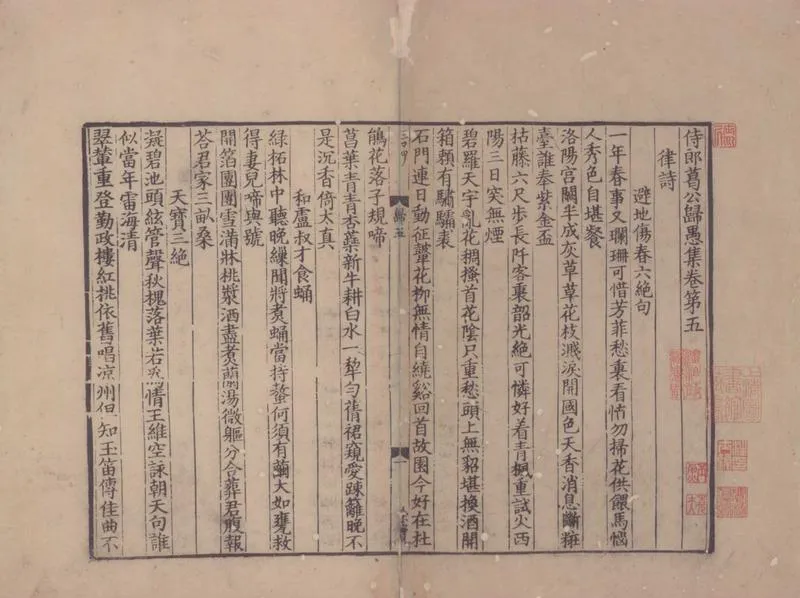 侍郎葛公歸愚集卷第五
律詩
避地傷春六絶句
一年春事又斕珊可惜芳菲愁裏看怙勿掃花供餵馬惱
人秀色自堪餐
洛陽宫闕半成灰草草花枝濺淚開國色天香消息斷
臺誰奉紫金盃
枯藤六尺步長阡客裏韶光絶可憐好着青楓重試火西
陽三日突無煙
碧羅天宇亂花稠搔首花陰只重愁頭上無貂堪換酒開
箱頼有驌驦裘
石門連日動征鼙花柳無情自繞谿回首故園今好在杜
鵑花落子規啼
菖葉青青杏蘂新牛耕白水一犂勻蒨裙窺愛踈籬晚不
是沉香倚太真
和盧叔才食蛹
綠柘林中聽晚繅聞將煮蛹當持螯何須有繭大如甕救
得妻兒啼與號
開箔團團雪滿牀桃漿洒盡煮蘭湯微軀分合葬君腹報
荅君家三畝桑
天寶三絶
凝碧池頭絃管聲秋槐落葉若爲情王維空詠朝天句誰
似當年雷海清
翠輦重登勤政樓紅桃依舊唱凉州但知玉笛傳佳曲不
歸五
一